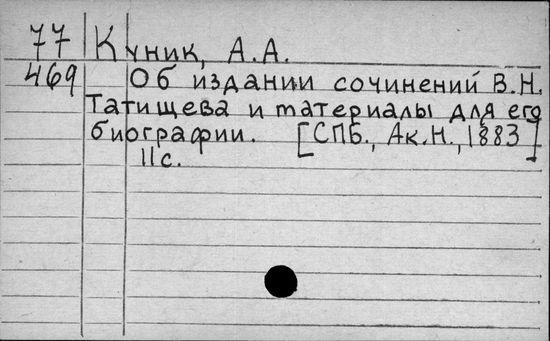 77 Куник, А.А.
469 Об издании сочинений В.Н.
Татищева и материалы для его
биографии. [СПБ., Ак.Н., 1883]
11с.